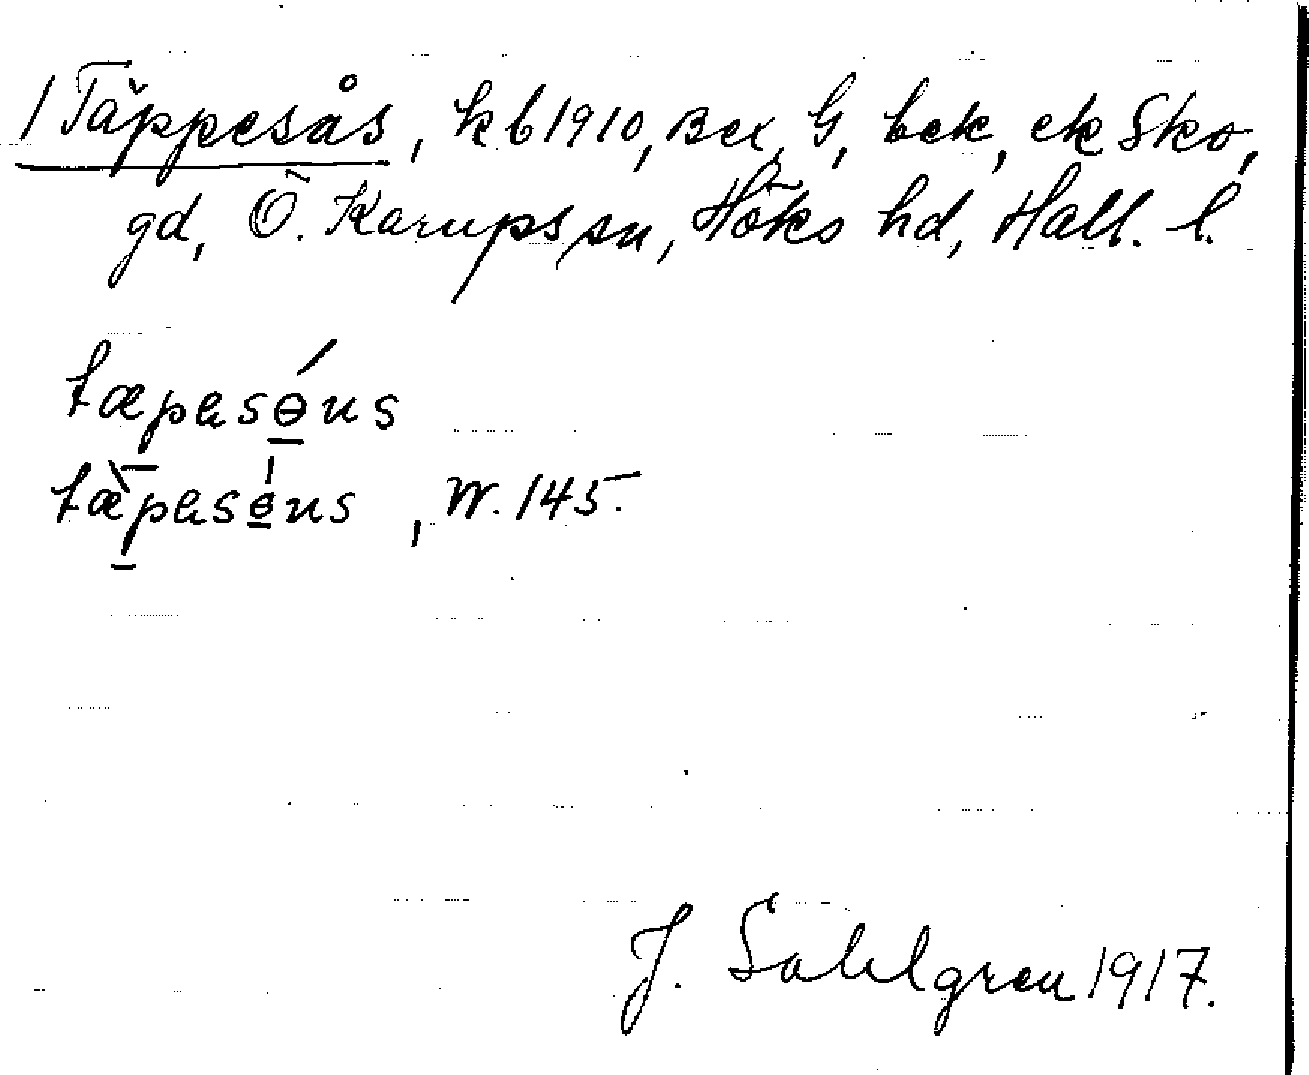 1 Täppesås, kb 1910, Bex, G, bek, ek Sko,
gd, Ö. Karups sn, Höks hd, Hall. l.
tæpasɵ́us
tæ̀pasɵ́us, W. 145.
J. Sahlgren 1917.